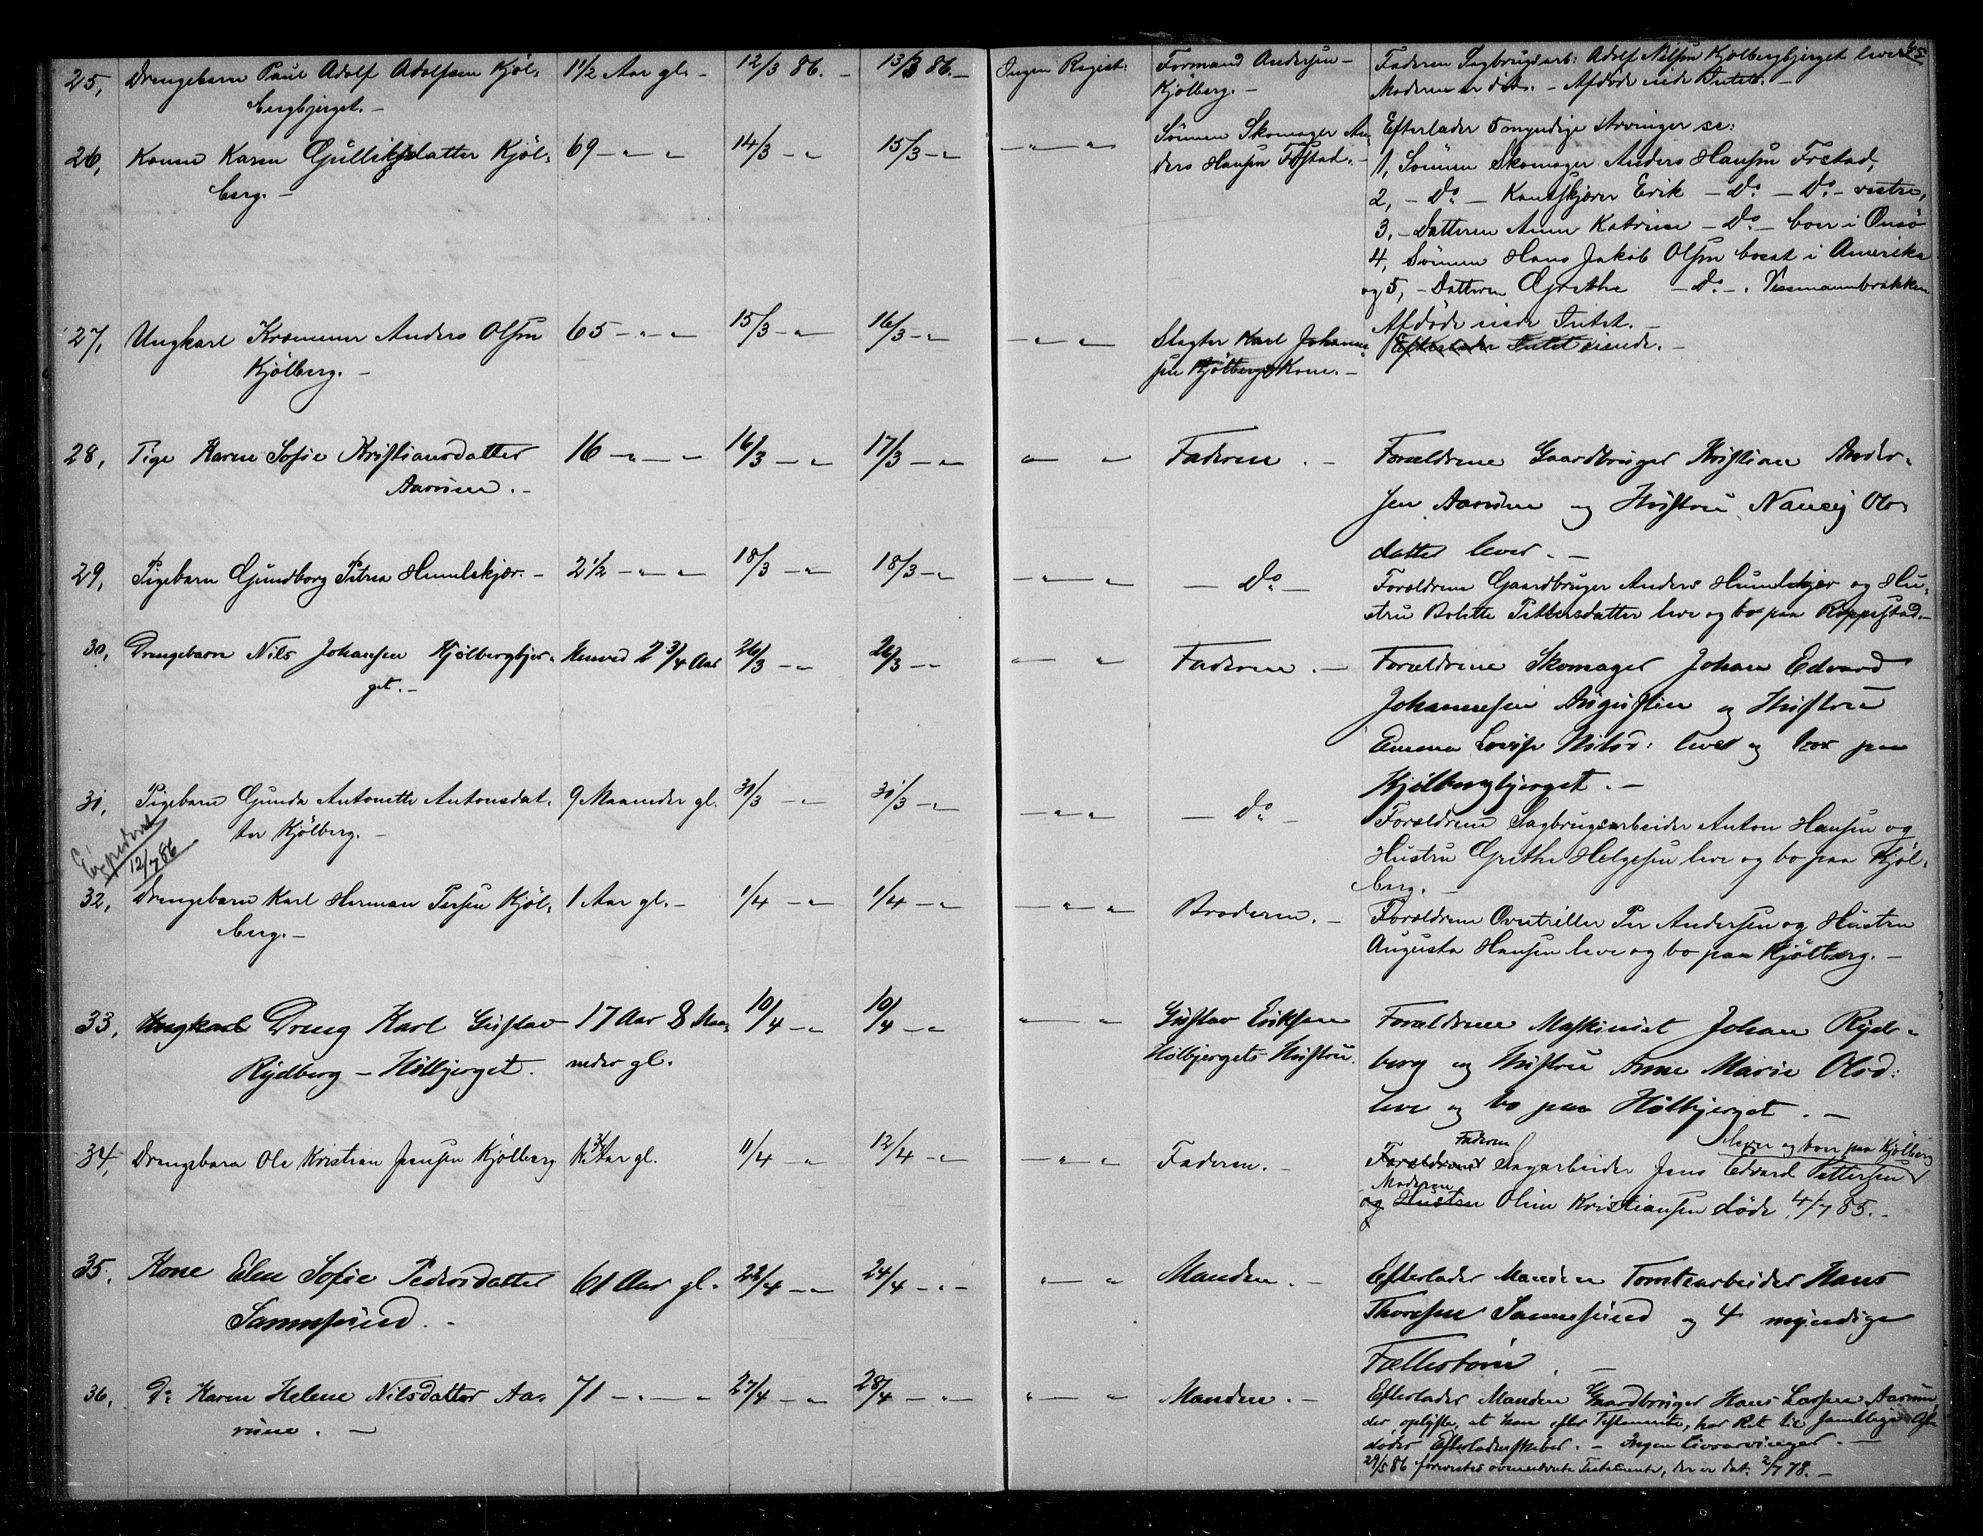 65
25, Drengebarn Paul Adolf Adolfsen Kjöl-
bergbjerget. –
1 1/2 Aar gl. –
12/3 86. –
13/3 86. –
Ingen Regist.
Formand Andersen –
Kjölberg. –
Faderen Sagbrugsarb: Adolf Nilsen Kjölbergbjerget lever
Moderen er död. – Afdöde eiede Intet. –
26, Konen Karen Gulliksdatter Kjöl-
berg. –
69 – " – "
14/3 – "
15/3 – "
– " – "
Sönnen Skomager An-
ders Hansen Frestad. –
Efterlader 5 myndige Arvinger se:
1, Sönnen Skomager Anders Hansen Frestad,
2, – Do – Erik – Do – Do – vestre,
3, – Datteren Anne Katrine – Do – boer i Onsö
4, Sönnen Hans Jakob Olsen bosat i Amerika
og 5, – Datteren Grethe – Do – . Vissmannbrakken
Afdöde eiede Intet. –
27, Ungkarl Kræmmer Anders Olsen
Kjölberg. –
65 – " – "
15/3 – "
16/3 – "
– " – "
Slagter Karl Johanne-
sen Kjölbergs Kone. –
Efterlader Intet eiende. –
28, Pige Karen Sofie Kristiansdatter
Aarum. –
16 – " – "
16/3 – "
17/3 – "
" – "
Faderen. –
Forældrene Gaardbruger Kristian Ander-
sen Aarum og Hustru Nancy Ols-
datter lever. –
29, Pigebarn Gundborg Petrea Humlekjær. –
2 1/2 – " – "
18/3 – "
18/3 – "
– " – "
– Do –
Forældrene Gaardbruger Anders Humlekjær og Hu-
stru Bolette Pettersdatter leve og bo paa Roppestad. –
30, Drengebarn Nils Johansen Kjølbergbjer-
get. –
Henved 2 3/4 Aar
26/3 – "
26/3 – "
" – "
Faderen. –
Forældrene Skomager Johan Edvard
Johannesen Augustin og Hustru
Emma Lovise Nilsd: lever og boer paa
Kjølbergbjerget. –
31, Pigebarn Gunda Antonette Antonsdat-
ter Kjölberg. –
9 Maaneder gl.
31/3 – "
31/3 – "
– " – "
– Do –
Forældrene Sagbrugsarbeider Anton Hansen og
Hustru Grethe Helgesen leve og bo paa Kjöl-
berg. –
Expederet
12/7 86
32, Drengebarn Karl Herman Persen Kjöl-
berg. –
1 Aar gl. –
1/4 – "
1/4 – "
– " – "
Broderen. –
Forældrene Per Andersen og Hustru
Augusta Hansen leve og bo paa Kjölberg. –
33, Ungkarl Dreng Karl Gustav
Rydberg – Hølbjerget.
17 Aar 8 Maa-
neder gl.
10/4 – "
10/4 – "
" – "
Gustav Eriksen
Hølbjergets Hustru.
Forældrene Maskinist Johan Ryd-
berg og Hustru Anne Marie Olsd:
leve og bo paa Hølbjerget. –
34, Drengebarn Ole Kristian Jensen Kjölberg
Aar gl.
11/4 – "
12/4 – "
– " – "
Faderen. –
Faderen lever og boer paa Kjölberg
Forældrene Sagarbeider Jens Edvard Pettersen
Moderen
og Hustru Oline Kristiansen döde 4/7 85. –
35, Kone Elen Sofie Pedersdatter
Sannesund. –
61 Aar gl.
22/4 – "
24/4 – " –
" – "
Manden. –
Efterlader Manden Tomtearbeider Hans
Thoresen Sannesund og 4 myndige
Fællesbørn. –
36, Do Karen Helene Nilsdatter Aa-
rum. –
71 – " – "
27/4 – "
28/4 – "
" – "
Manden. –
Efterlader Manden Gaardbruger Hans Larsen Aarum,
der oplyste, at han efter Testamente, har Ret til samtlige Af-
dödes Efterladenskaber. – Ingen Livsarvinger. –
29/5 86 forevistes ovennævnte Testamente, der er dat. 2/7 78. –